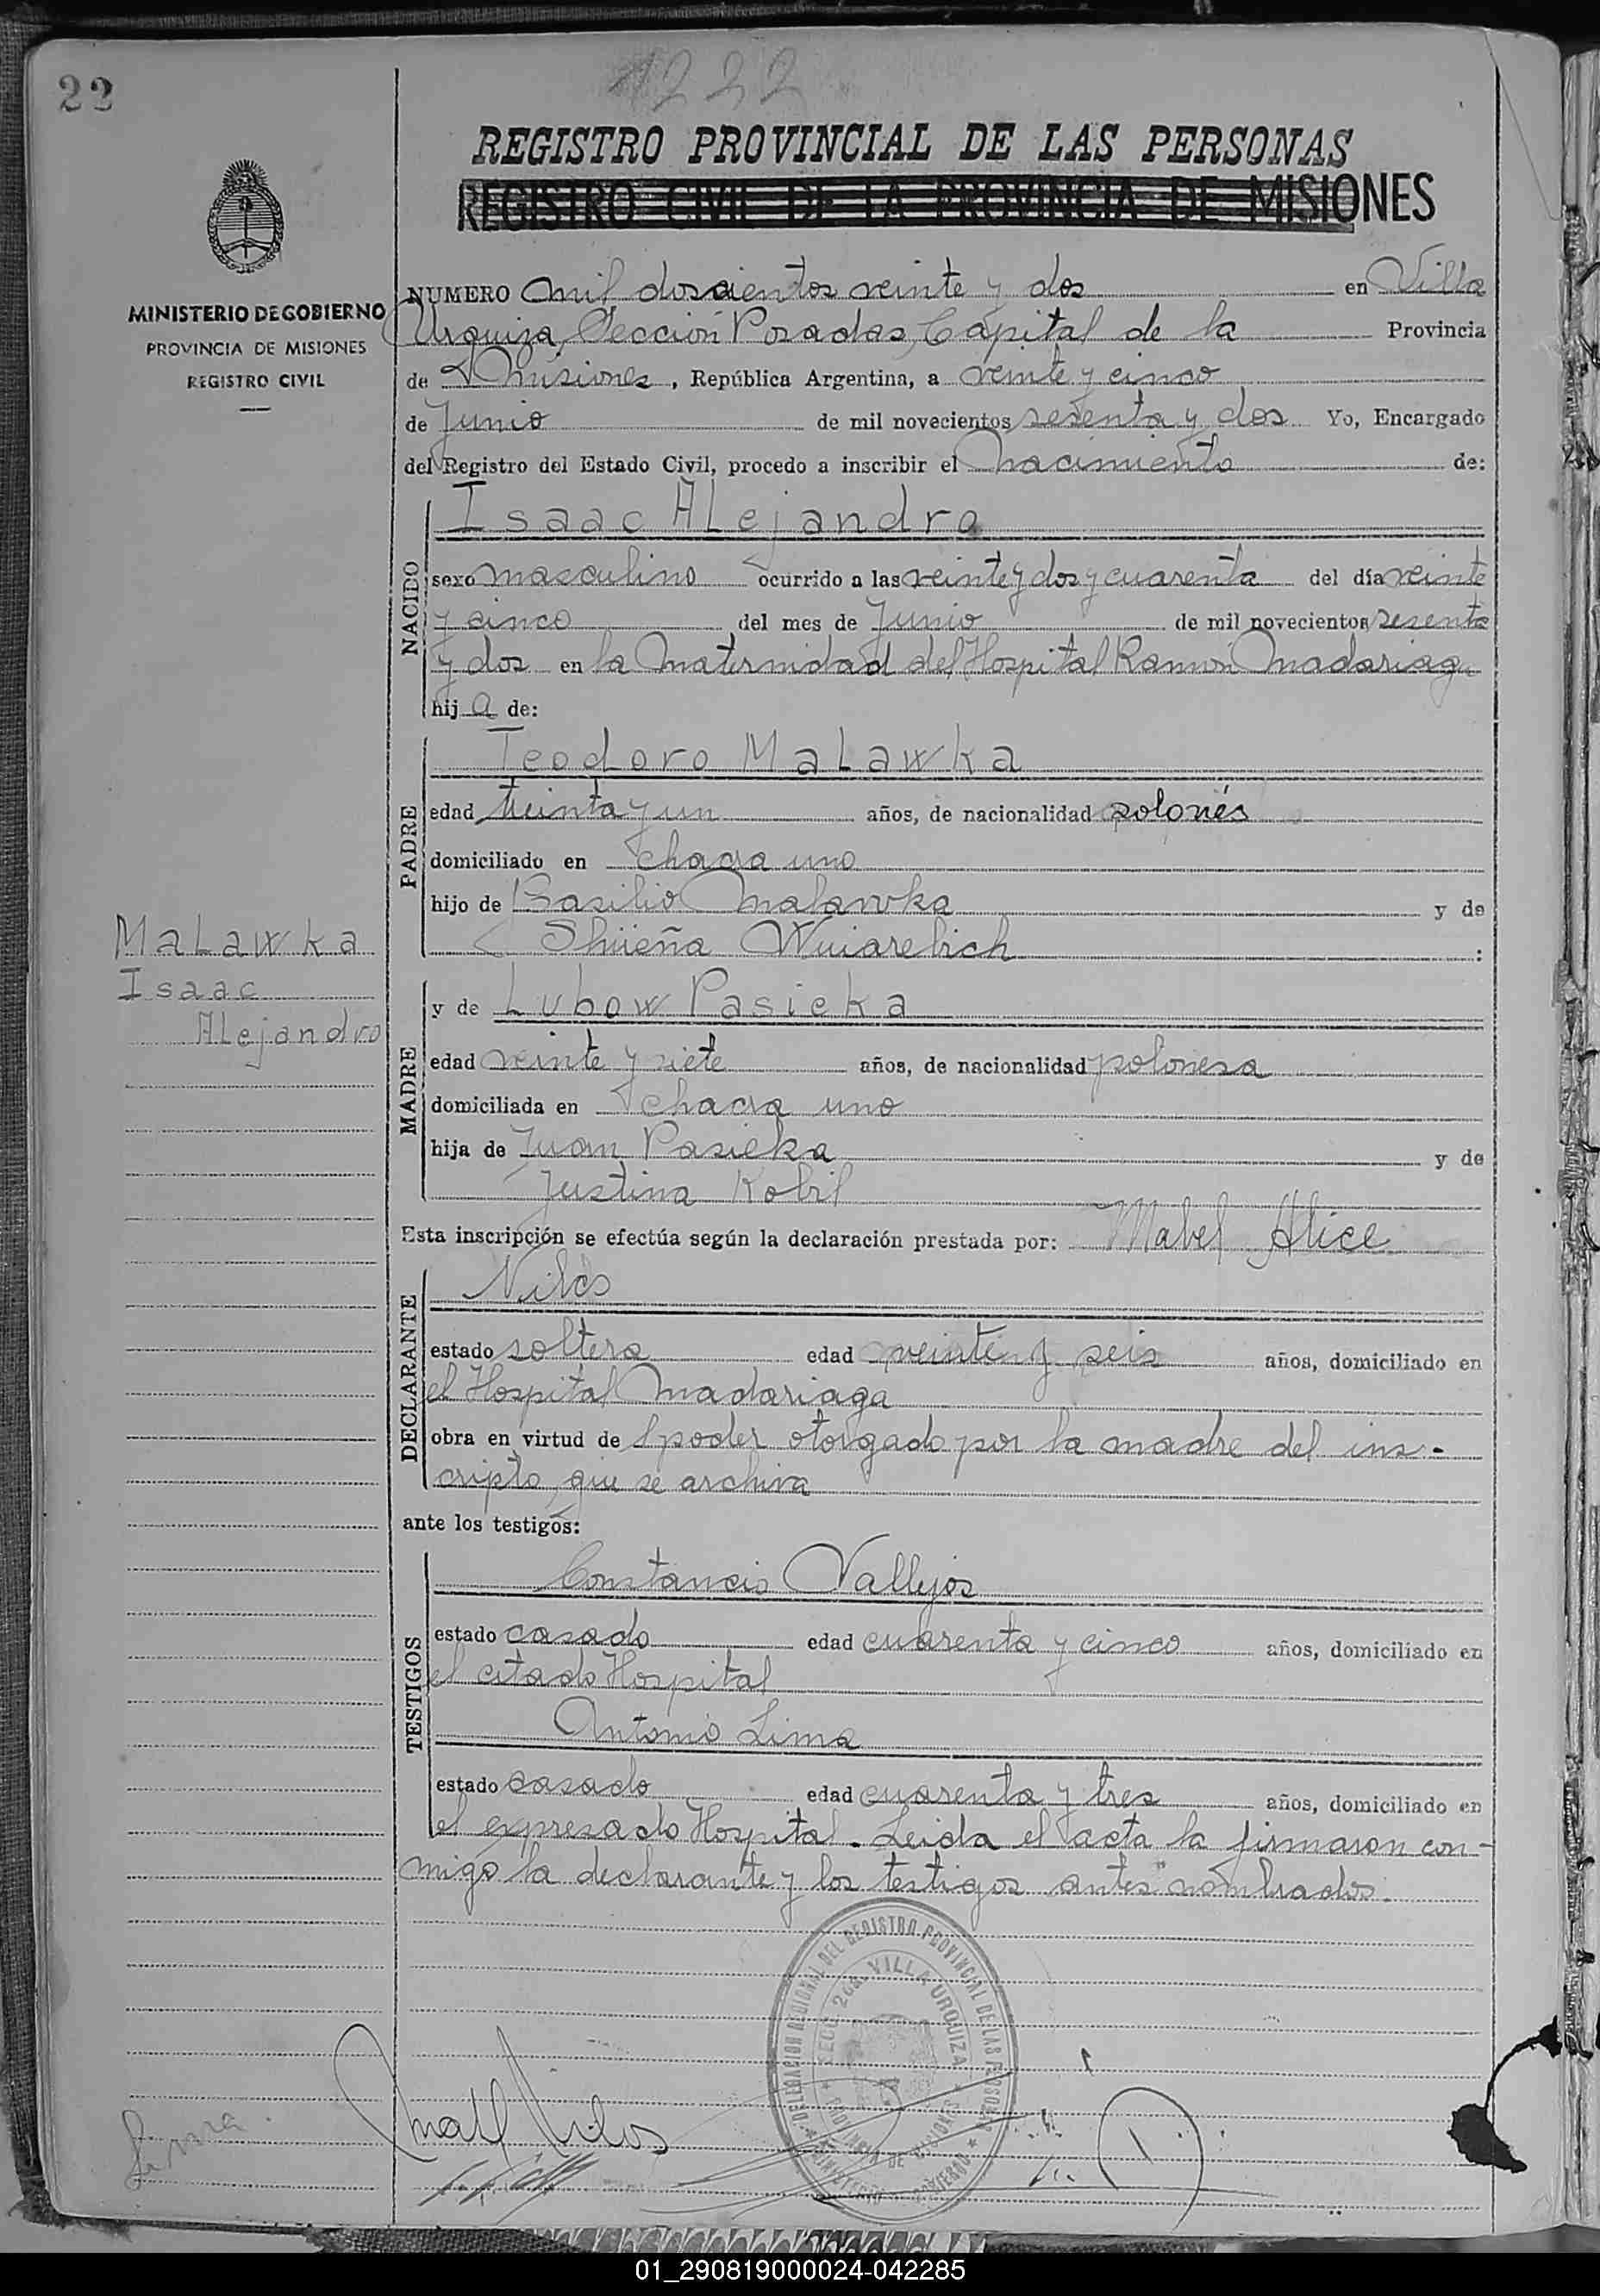 22
1222
REGISTRO PROVINCIAL DE LAS PERSONAS
REGISTRO CIVIL DE LA PROVINCIA DE MISIONES
MINISTERIO DE GOBIERNO
PROVINCIA DE MISIONES
REGISTRO CIVIL
NUMERO mil doscientos veinte y dos en Villa
Urquiza, Sección Posadas, Capital de la Provincia
de Misiones, República Argentina, a veinte y cinco
de Junio de mil novecientos sesenta y dos Yo, Encargado
del Registro del Estado Civil, procedo a inscribir el nacimiento de:
NACIDO
Isaac Alejandro
sexo masculino ocurrido a las veinte y dos y cuarenta del día veinte
y cinco del mes de Junio de mil novecientos sesenta
y dos en la Maternidad del Hospital Ramón Madariaga
hij o de:
PADRE
Teodoro Malawka
edad treinta y un años, de nacionalidad polonés
domiciliado en chacra uno
hijo de Basilio Malawka y de
Shüeña :
MADRE
y de Lubow Pasieka
edad veinte y siete años, de nacionalidad polonesa
domiciliada en chacra uno
hija de Juan Pasieka y de
Justina Kobil
Malawka
Isaac
Alejandro
Esta inscripción se efectúa según la declaración prestada por: Mabel Alice
DECLARANTE
Vilos
estado soltera edad veinte y seis años, domiciliado en
el Hospital Madariaga
obra en virtud de poder otorgado por la madre del ins-
cripto, que se archiva
ante los testigos:
TESTIGOS
Constancio Vallejos
estado casado edad cuarenta y cinco años, domiciliado en
el citado Hospital
Antonio Lima
estado casado edad cuarenta y tres años, domiciliado en
el expresado Hospital. Leida el acta la firmaron con-
migo la declarante y los testigos antes nombrados.
DELEGACION REGIONAL DEL REGISTRO PROVINCIAL DE LAS PERSONAS
SECC. 2da. VILLA URQUIZA
PROVINCIA DE MISIONES
MINISTERIO GOBIERNO
Vilos
Lima
01_290819000024-042285